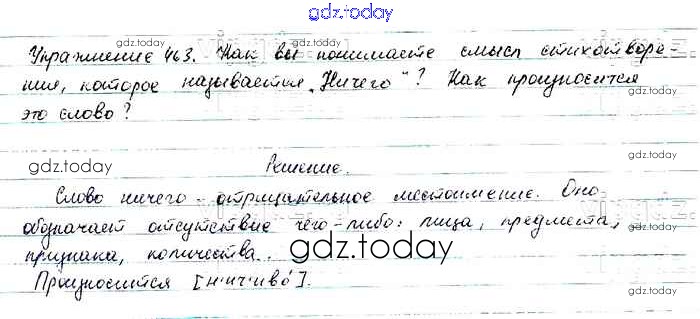 gdz.today
Упражнение 463. Как вы понимаете смысл стихотворе-
gdz.today gdz.today
ния, которое называется „Ничего“? Как произносится
gdz.today gdz.today
это слово?
gdz.today Решение. gdz.today
Слово ничего - отрицательное местоимение. Оно
gdz.today gdz.today
обозначает отсутствие чего-либо: лица, предмета,
признака, количества.
gdz.today
Произносится [н'ич'иво́].
gdz.today gdz.today